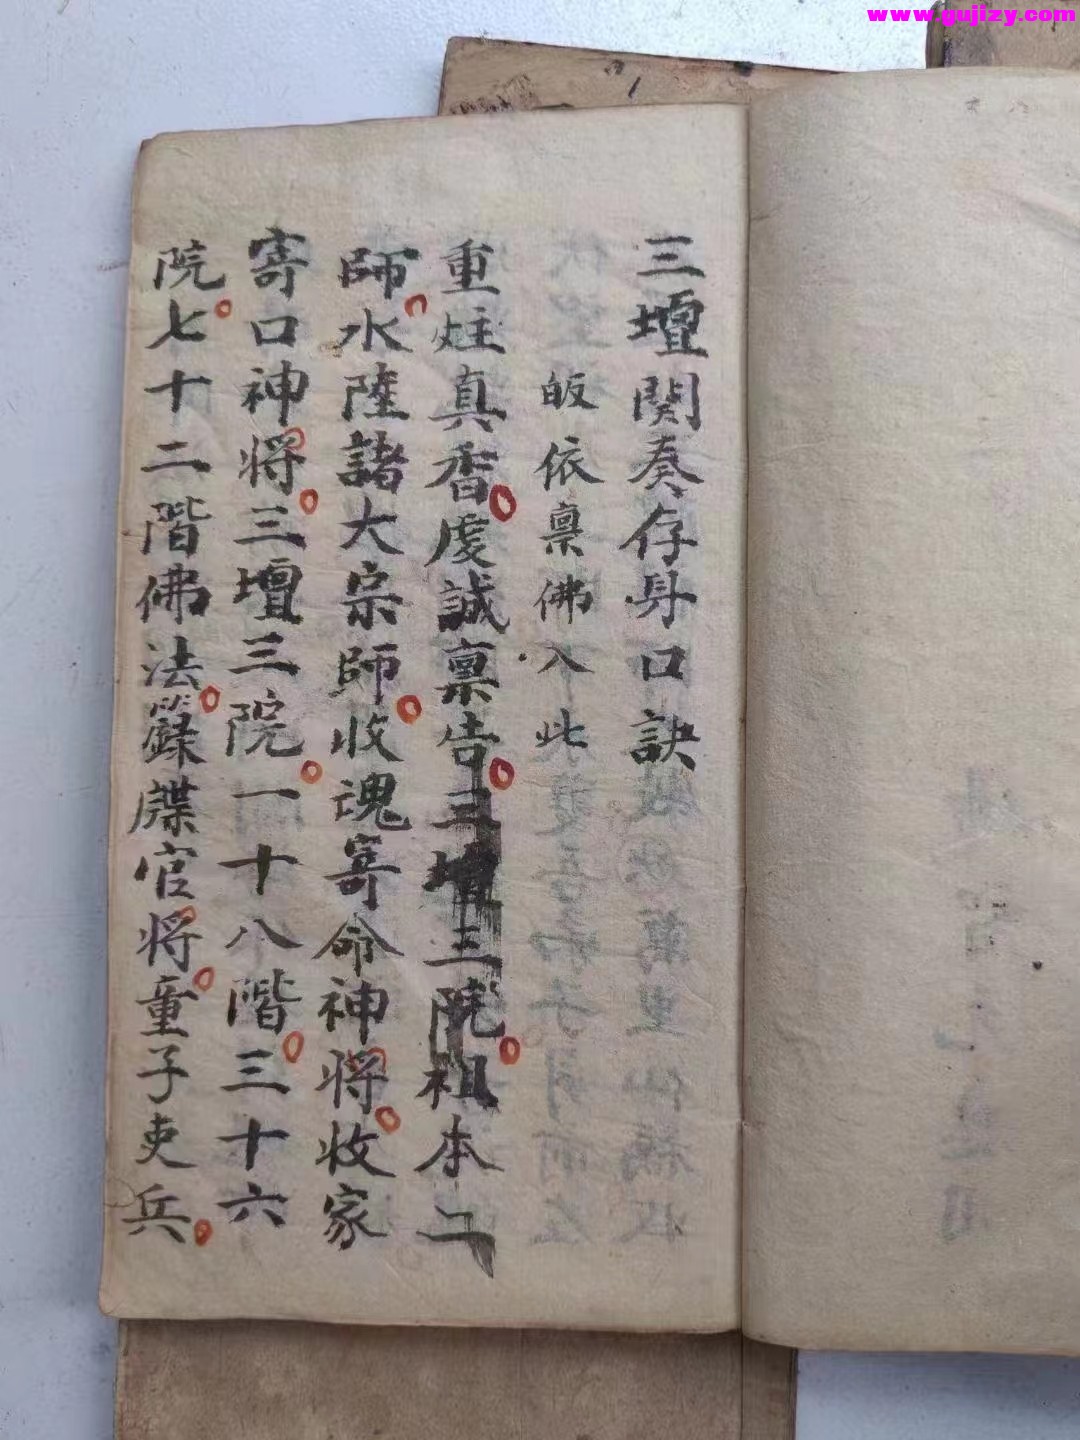 www.gujizy.com
三壇関奏存身口訣
皈依禀佛入此
重炷真香虔誠禀告三壇三院祖本二
師水陸諸大宗師收魂寄命神将收家
寄口神将三壇三院一十八階三十六
院七十二階佛法籙牒官将童子吏兵